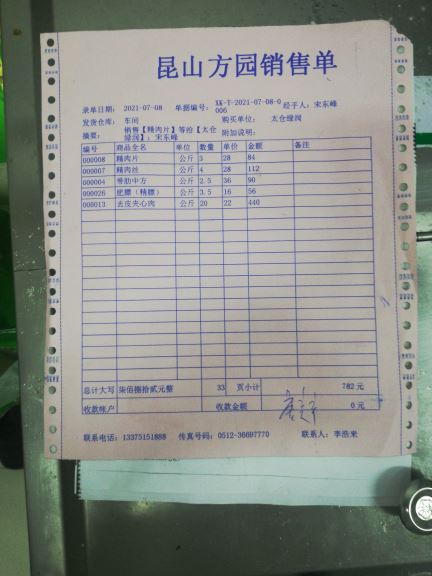 昆山方园销售单
录单日期: 2021-07-08 单据编号: XK-T-2021-07-08-0006 经手人: 宋东峰
发货仓库: 车间 购买单位: 太仓绿润
摘要: 销售【精肉片】等给【太仓绿润】: 宋东峰 附加说明:
编号 商品全名 单位 数量 单价 金额 备注
000008 精肉片 公斤 3 28 84
000007 精肉丝 公斤 4 28 112
000004 带肋中方 公斤 2.5 36 90
000026 肥膘（精膘） 公斤 3.5 16 56
000013 去皮夹心肉 公斤 20 22 440
总计大写 柒佰捌拾贰元整 33 页小计 782 元
收款帐户 收款金额 0 元
联系电话: 13375151888 传真号码: 0512-36697770 联系人: 李浩来